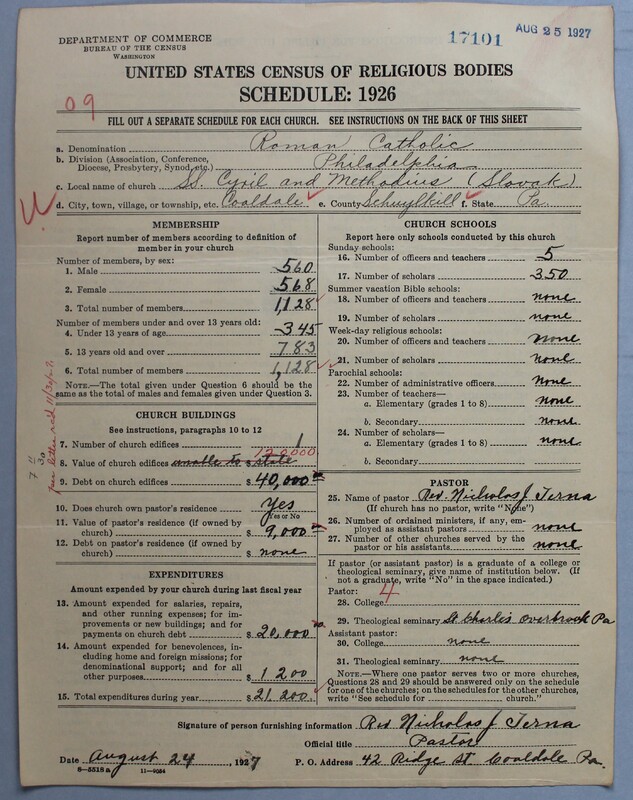 DEPARTMENT OF COMMERCE
BUREAU OF THE CENSUS
WASHINGTON
17101
AUG 25 1927
UNITED STATES CENSUS OF RELIGIOUS BODIES
SCHEDULE: 1926
09
FILL OUT A SEPARATE SCHEDULE FOR EACH CHURCH. SEE INSTRUCTIONS ON THE BACK OF THIS SHEET
a. Denomination Roman Catholic
b. Division (Association, Conference, Diocese, Presbytery, Synod, etc.) Philadelphia
c. Local name of church St. Cyril and Methodius (Slovak)
d. City, town, village, or township, etc. Coaldale e. County Schuylkill f. State Pa.
MEMBERSHIP
Report number of members according to definition of
member in your church
Number of members, by sex:
1. Male 560
2. Female 568
3. Total number of members 1,128
Number of members under and over 13 years old:
4. Under 13 years of age 345
5. 13 years old and over 783
6. Total number of members 1,128
NOTE.—The total given under Question 6 should be the
same as the total of males and females given under Question 3.
CHURCH BUILDINGS
See instructions, paragraphs 10 to 12
7. Number of church edifices 1
120000
8. Value of church edifices unable to $ state
9. Debt on church edifices $ 40,000 00
10. Does church own pastor's residence? Yes
Yes or No
11. Value of pastor's residence (if owned by
church) $ 9,000 00
12. Debt on pastor's residence (if owned by
church) $ none
per letter
EXPENDITURES
Amount expended by your church during last fiscal year
13. Amount expended for salaries, repairs,
and other running expense; for im-
provements or new buildings; and for
payments on church debt $ 20,000
14. Amount expended for benevolences, in-
cluding home and foreign missions; for
denominational support; and for all
other purposes $ 1 200
15. Total expenditures during year $ 21,200
CHURCH SCHOOLS
Report here only schools conducted by this church
Sunday schools:
16. Number of officers and teachers 5
17. Number of scholars 350
Summer vacation Bible schools:
18. Number of officers and teachers none
19. Number of scholars none
Week-day religious schools:
20. Number of officers and teachers none
21. Number of scholars none
Parochial schools:
22. Number of administrative officers none
23. Number of teachers—
a. Elementary (grades 1 to 8) none
b. Secondary none
24. Number of scholars—
a. Elementary (grades 1 to 8) none
b. Secondary
PASTOR
25. Name of pastor Rev. Nicholas J Terna
(If church has no pastor, write "None")
26. Number of ordained ministers, if any, em-
ployed as assistant pastors none
27. Number of other churches served by the
pastor or his assistants none
If pastor (or assistant pastor) is a graduate of a college or
theological seminary, give name of institution below. (If
not a graduate, write "No" in the space indicated.)
Pastor: 4
28. College
29. Theological seminary St Charles Overbrook Pa
Assistant pastor:
30. College none
31. Theological seminary none
NOTE.—Where one pastor serves two or more churches,
Questions 28 and 29 should be answered only on the schedule
for one of the churches; on the schedules for the other churches,
write "See schedule for church."
Signature of person furnishing information Rev Nicholas J Terna
Official title Pastor
Date August 24, 1927 P. O. Address 42 Ridge St Coaldale Pa.
8—5518a 11—9564